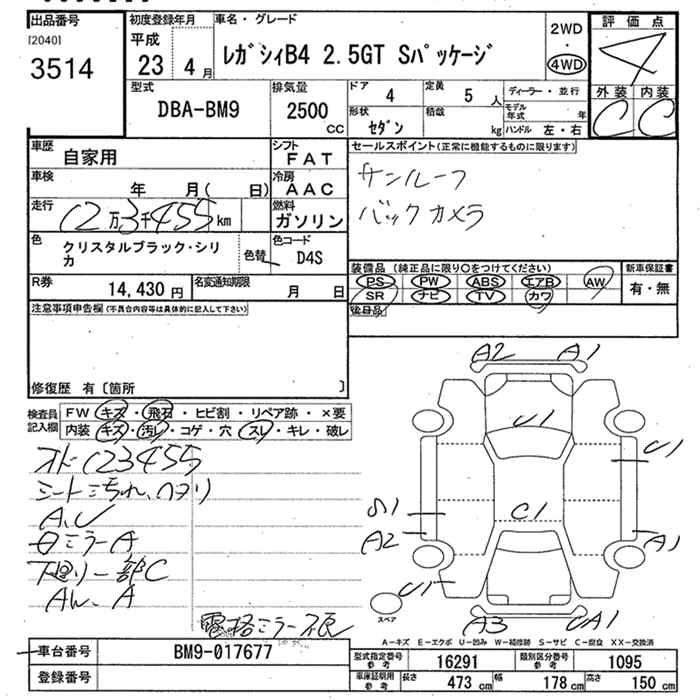 出品番号
[2040]
3514
初度登録年月
平成
23 4月
車名・グレード
レガシィB4 2.5GT Sパッケージ
2WD
・
4WD
評価点
4
外装 内装
C C
型式
DBA-BM9
排気量
2500
CC
ドア
4
定員
5 人
ディーラー・並行
形状
セダン
積載
kg
モデル年式 年
ハンドル 左・右
車歴
自家用
シフト
FAT
車検
年 月( 日)
冷房
AAC
走行
12万3千455km
燃料
ガソリン
色
クリスタルブラック・シリカ
色替
色コード
D4S
R券
14,430 円
名変通知期限
月 日
セールスポイント(正常に機能するものに限ります)
サンルーフ
バックカメラ
装備品(純正品に限り○をつけてください)
PS PW ABS エアB AW
SR ナビ TV カワ
新車保証書
有・無
後日品
注意事項申告欄(不具合内容等は具体的に記入して下さい)
修復歴 有〔箇所 〕
検査員記入欄
FW キズ・飛石・ヒビ割・リペア跡・×要
内装 キズ・汚レ・コゲ・穴・スレ・キレ・破レ
オド123455
シート汚れ、ヘタリ
A、U
ミラーA
下廻り一部C
AW、A
電格ミラー不良
A2 A1
U1
U1
C1
A2 A1
U1
A3
スペア
A-キズ E-エクボ U-凹み W-補修跡 S-サビ C-腐食 XX-交換済
車台番号
BM9-017677
登録番号
型式指定番号 参考
16291
類別区分番号 参考
1095
車庫証明用 参考
長さ 473 cm
幅 178 cm
高さ 150 cm